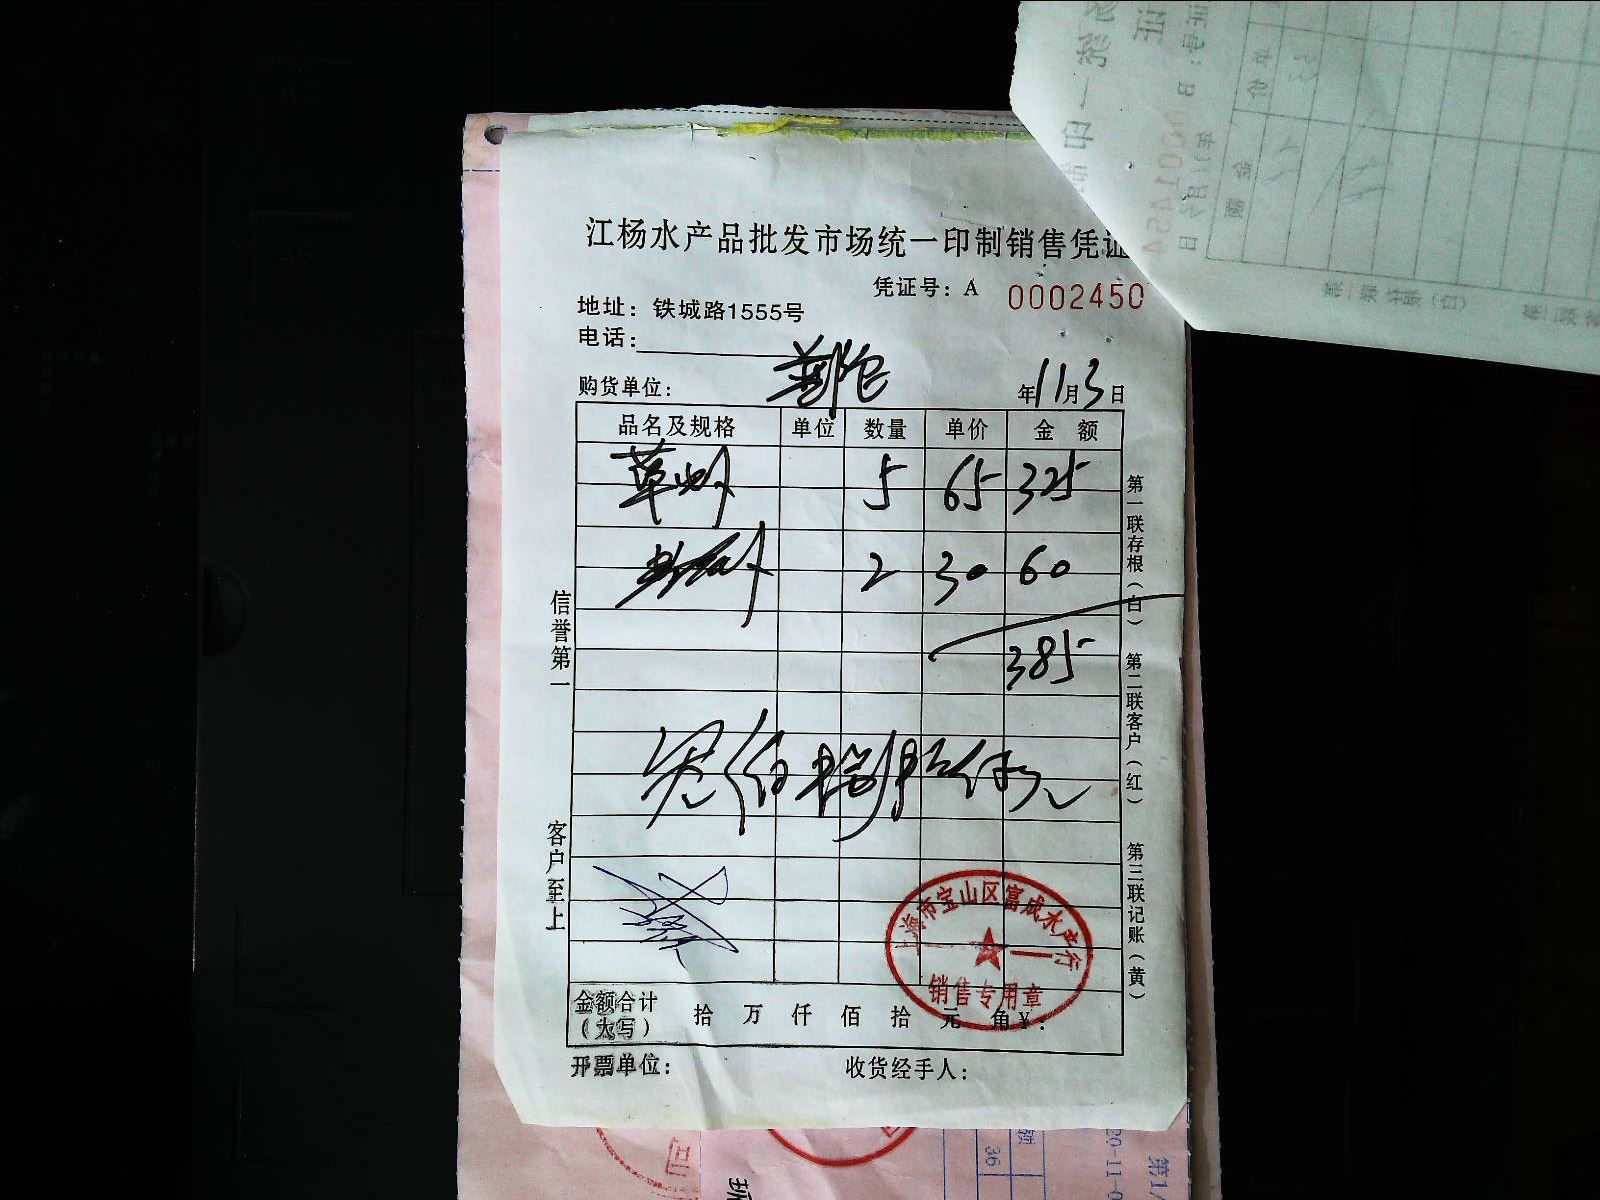 江杨水产品批发市场统一印制销售凭证
凭证号：A 0002450
地址：铁城路1555号
电话：
购货单位：
年11月3日
品名及规格 单位 数量 单价 金额
草虾 5 65 325
2 30 60
385
叁佰捌拾伍元
信誉第一
客户至上
第一联存根（白）
第二联客户（红）
第三联记账（黄）
上海市宝山区富成水产行
销售专用章
金额合计（大写） 拾 万 仟 佰 拾 元 角 ¥：
开票单位：
收货经手人：
36